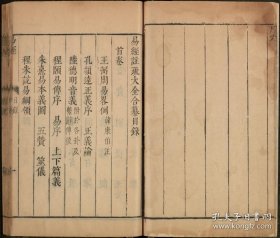 易經註疏大全合纂目錄
首卷
王弼周易畧例
孔穎達正義序 正義論
陸德明音義
程頤易傳序 易序 上下篇義
朱熹易本義圖 五贊 筮儀
程朱説易綱領
易經
孔夫子旧书网